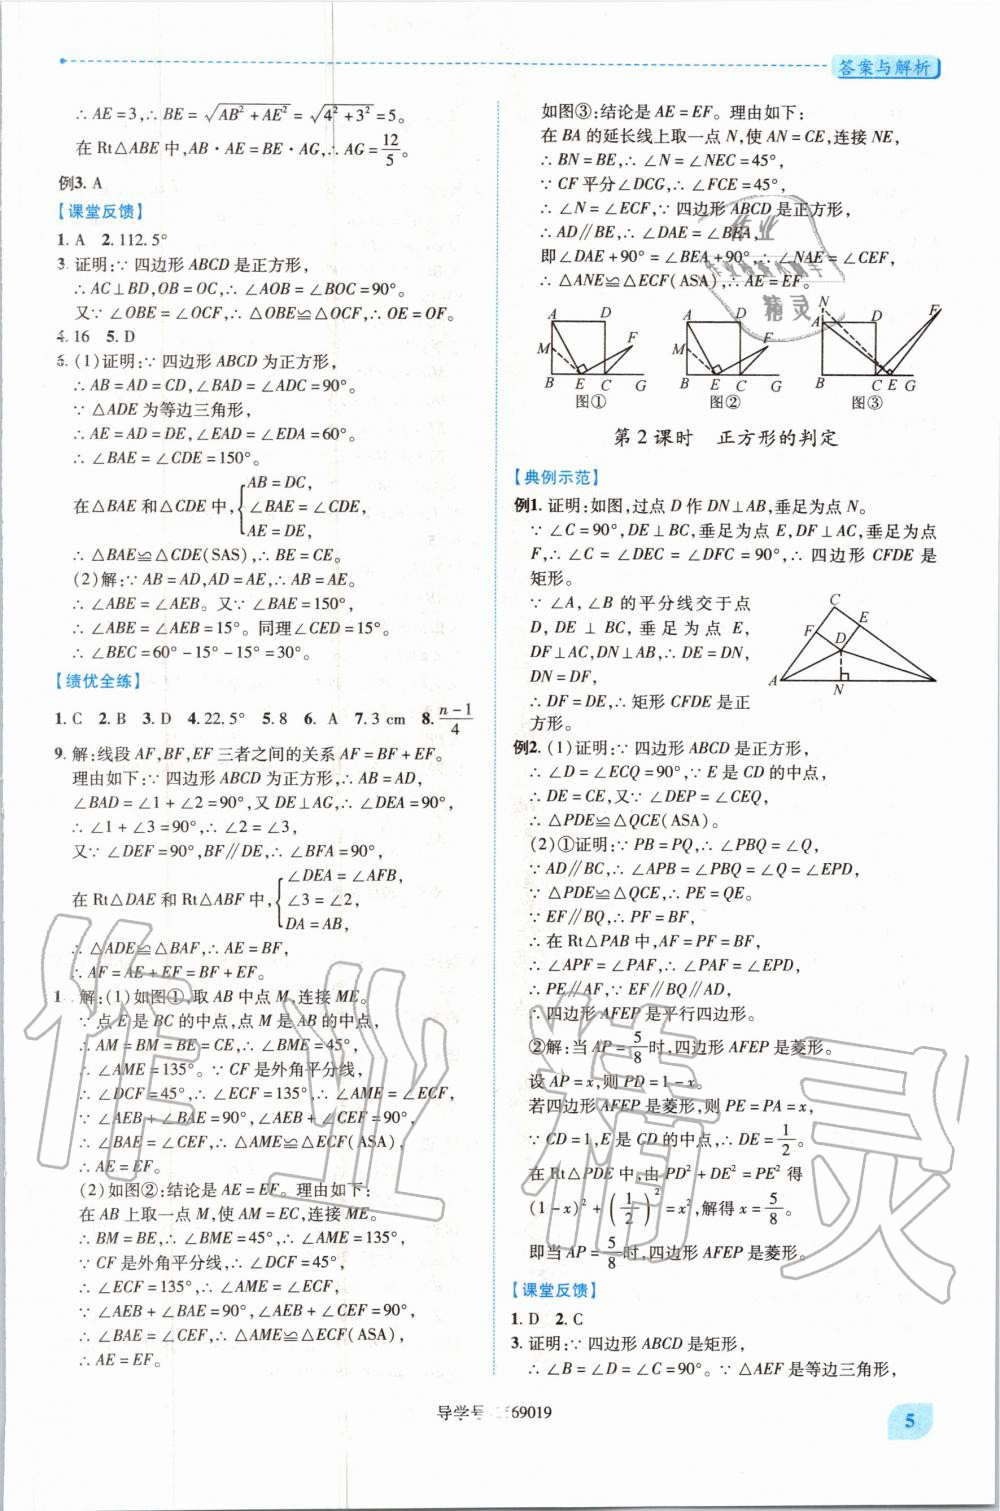 答案与解析
∴ AE=3,∴ BE=√(AB²+AE²)=√(4²+3²)=5。
在 Rt△ABE 中,AB·AE=BE·AG,∴ AG=12/5。
例3. A
【课堂反馈】
1. A  2. 112.5°
3. 证明:∵ 四边形 ABCD 是正方形,
∴ AC⊥BD,OB=OC,∴ ∠AOB=∠BOC=90°。
又∵ ∠OBE=∠OCF,∴ △OBE≌△OCF,∴ OE=OF。
4. 16  5. D
6. (1)证明:∵ 四边形 ABCD 为正方形,
∴ AB=AD=CD,∠BAD=∠ADC=90°。
∵ △ADE 为等边三角形,
∴ AE=AD=DE,∠EAD=∠EDA=60°。
∴ ∠BAE=∠CDE=150°。
在△BAE 和△CDE 中,{AB=DC,
∠BAE=∠CDE,
AE=DE,
∴ △BAE≌△CDE(SAS),∴ BE=CE。
(2)解:∵ AB=AD,AD=AE,∴ AB=AE。
∴ ∠ABE=∠AEB。又∵ ∠BAE=150°,
∴ ∠ABE=∠AEB=15°。同理∠CED=15°。
∴ ∠BEC=60°-15°-15°=30°。
【绩优全练】
1. C  2. B  3. D  4. 22.5°  5. 8  6. A  7. 3 cm  8. (n-1)/4
9. 解:线段 AF,BF,EF 三者之间的关系 AF=BF+EF。
理由如下:∵ 四边形 ABCD 为正方形,∴ AB=AD,
∠BAD=∠1+∠2=90°,又 DE⊥AG,∴ ∠DEA=90°,
∴ ∠1+∠3=90°,∴ ∠2=∠3,
又∵ ∠DEF=90°,BF∥DE,∴ ∠BFA=90°,
在 Rt△DAE 和 Rt△ABF 中,{∠DEA=∠AFB,
∠3=∠2,
DA=AB,
∴ △ADE≌△BAF,∴ AE=BF,
∴ AF=AE+EF=BF+EF。
1 解:(1)如图①,取 AB 中点 M,连接 ME。
∵ 点 E 是 BC 的中点,点 M 是 AB 的中点,
∴ AM=BM=BE=CE,∴ ∠BME=45°,
∴ ∠AME=135°。∵ CF 是外角平分线,
∴ ∠DCF=45°,∴ ∠ECF=135°,∴ ∠AME=∠ECF,
∵ ∠AEB+∠BAE=90°,∠AEB+∠CEF=90°,
∴ ∠BAE=∠CEF,∴ △AME≌△ECF(ASA),
∴ AE=EF。
(2)如图②:结论是 AE=EF。理由如下:
在 AB 上取一点 M,使 AM=EC,连接 ME。
∴ BM=BE,∴ ∠BME=45°,∴ ∠AME=135°。
∵ CF 是外角平分线,∴ ∠DCF=45°,
∴ ∠ECF=135°,∴ ∠AME=∠ECF,
∵ ∠AEB+∠BAE=90°,∠AEB+∠CEF=90°,
∴ ∠BAE=∠CEF,∴ △AME≌△ECF(ASA),
∴ AE=EF。
如图③:结论是 AE=EF。理由如下:
在 BA 的延长线上取一点 N,使 AN=CE,连接 NE,
∴ BN=BE,∴ ∠N=∠NEC=45°,
∵ CF 平分∠DCG,∴ ∠FCE=45°,
∴ ∠N=∠ECF,∵ 四边形 ABCD 是正方形,
∴ AD∥BE,∴ ∠DAE=∠BEA,
即∠DAE+90°=∠BEA+90°,∴ ∠NAE=∠CEF,
∴ △ANE≌△ECF(ASA),∴ AE=EF。
A D F M B E C G
图①
A D F M B E C G
图②
N F A D B C E G
图③
第 2 课时  正方形的判定
【典例示范】
例1. 证明:如图,过点 D 作 DN⊥AB,垂足为点 N。
∵ ∠C=90°,DE⊥BC,垂足为点 E,DF⊥AC,垂足为点
F,∴ ∠C=∠DEC=∠DFC=90°,∴ 四边形 CFDE 是
矩形。
∵ ∠A,∠B 的平分线交于点
D,DE⊥BC,垂足为点 E,
DF⊥AC,DN⊥AB,∴ DE=DN,
DN=DF,
∴ DF=DE,∴ 矩形 CFDE 是正
方形。
C F E D A N
例2. (1)证明:∵ 四边形 ABCD 是正方形,
∴ ∠D=∠ECQ=90°,∵ E 是 CD 的中点,
∴ DE=CE,又∵ ∠DEP=∠CEQ,
∴ △PDE≌△QCE(ASA)。
(2)①证明:∵ PB=PQ,∴ ∠PBQ=∠Q,
∵ AD∥BC,∴ ∠APB=∠PBQ=∠Q=∠EPD,
∵ △PDE≌△QCE,∴ PE=QE。
∵ EF∥BQ,∴ PF=BF,
∴ 在 Rt△PAB 中,AF=PF=BF,
∴ ∠APF=∠PAF,∴ ∠PAF=∠EPD,
∴ PE∥AF,∵ EF∥BQ∥AD,
∴ 四边形 AFEP 是平行四边形。
②解:当 AP=5/8时,四边形 AFEP 是菱形。
设 AP=x,则 PD=1-x。
若四边形 AFEP 是菱形,则 PE=PA=x,
∵ CD=1,E 是 CD 的中点,∴ DE=1/2。
在 Rt△PDE 中,由 PD²+DE²=PE² 得
(1-x)²+(1/2)²=x²,解得 x=5/8。
即当 AP=5/8时,四边形 AFEP 是菱形。
【课堂反馈】
1. D  2. C
3. 证明:∵ 四边形 ABCD 是矩形,
∴ ∠B=∠D=∠C=90°。∵ △AEF 是等边三角形,
作业精灵
导学号 69019
5